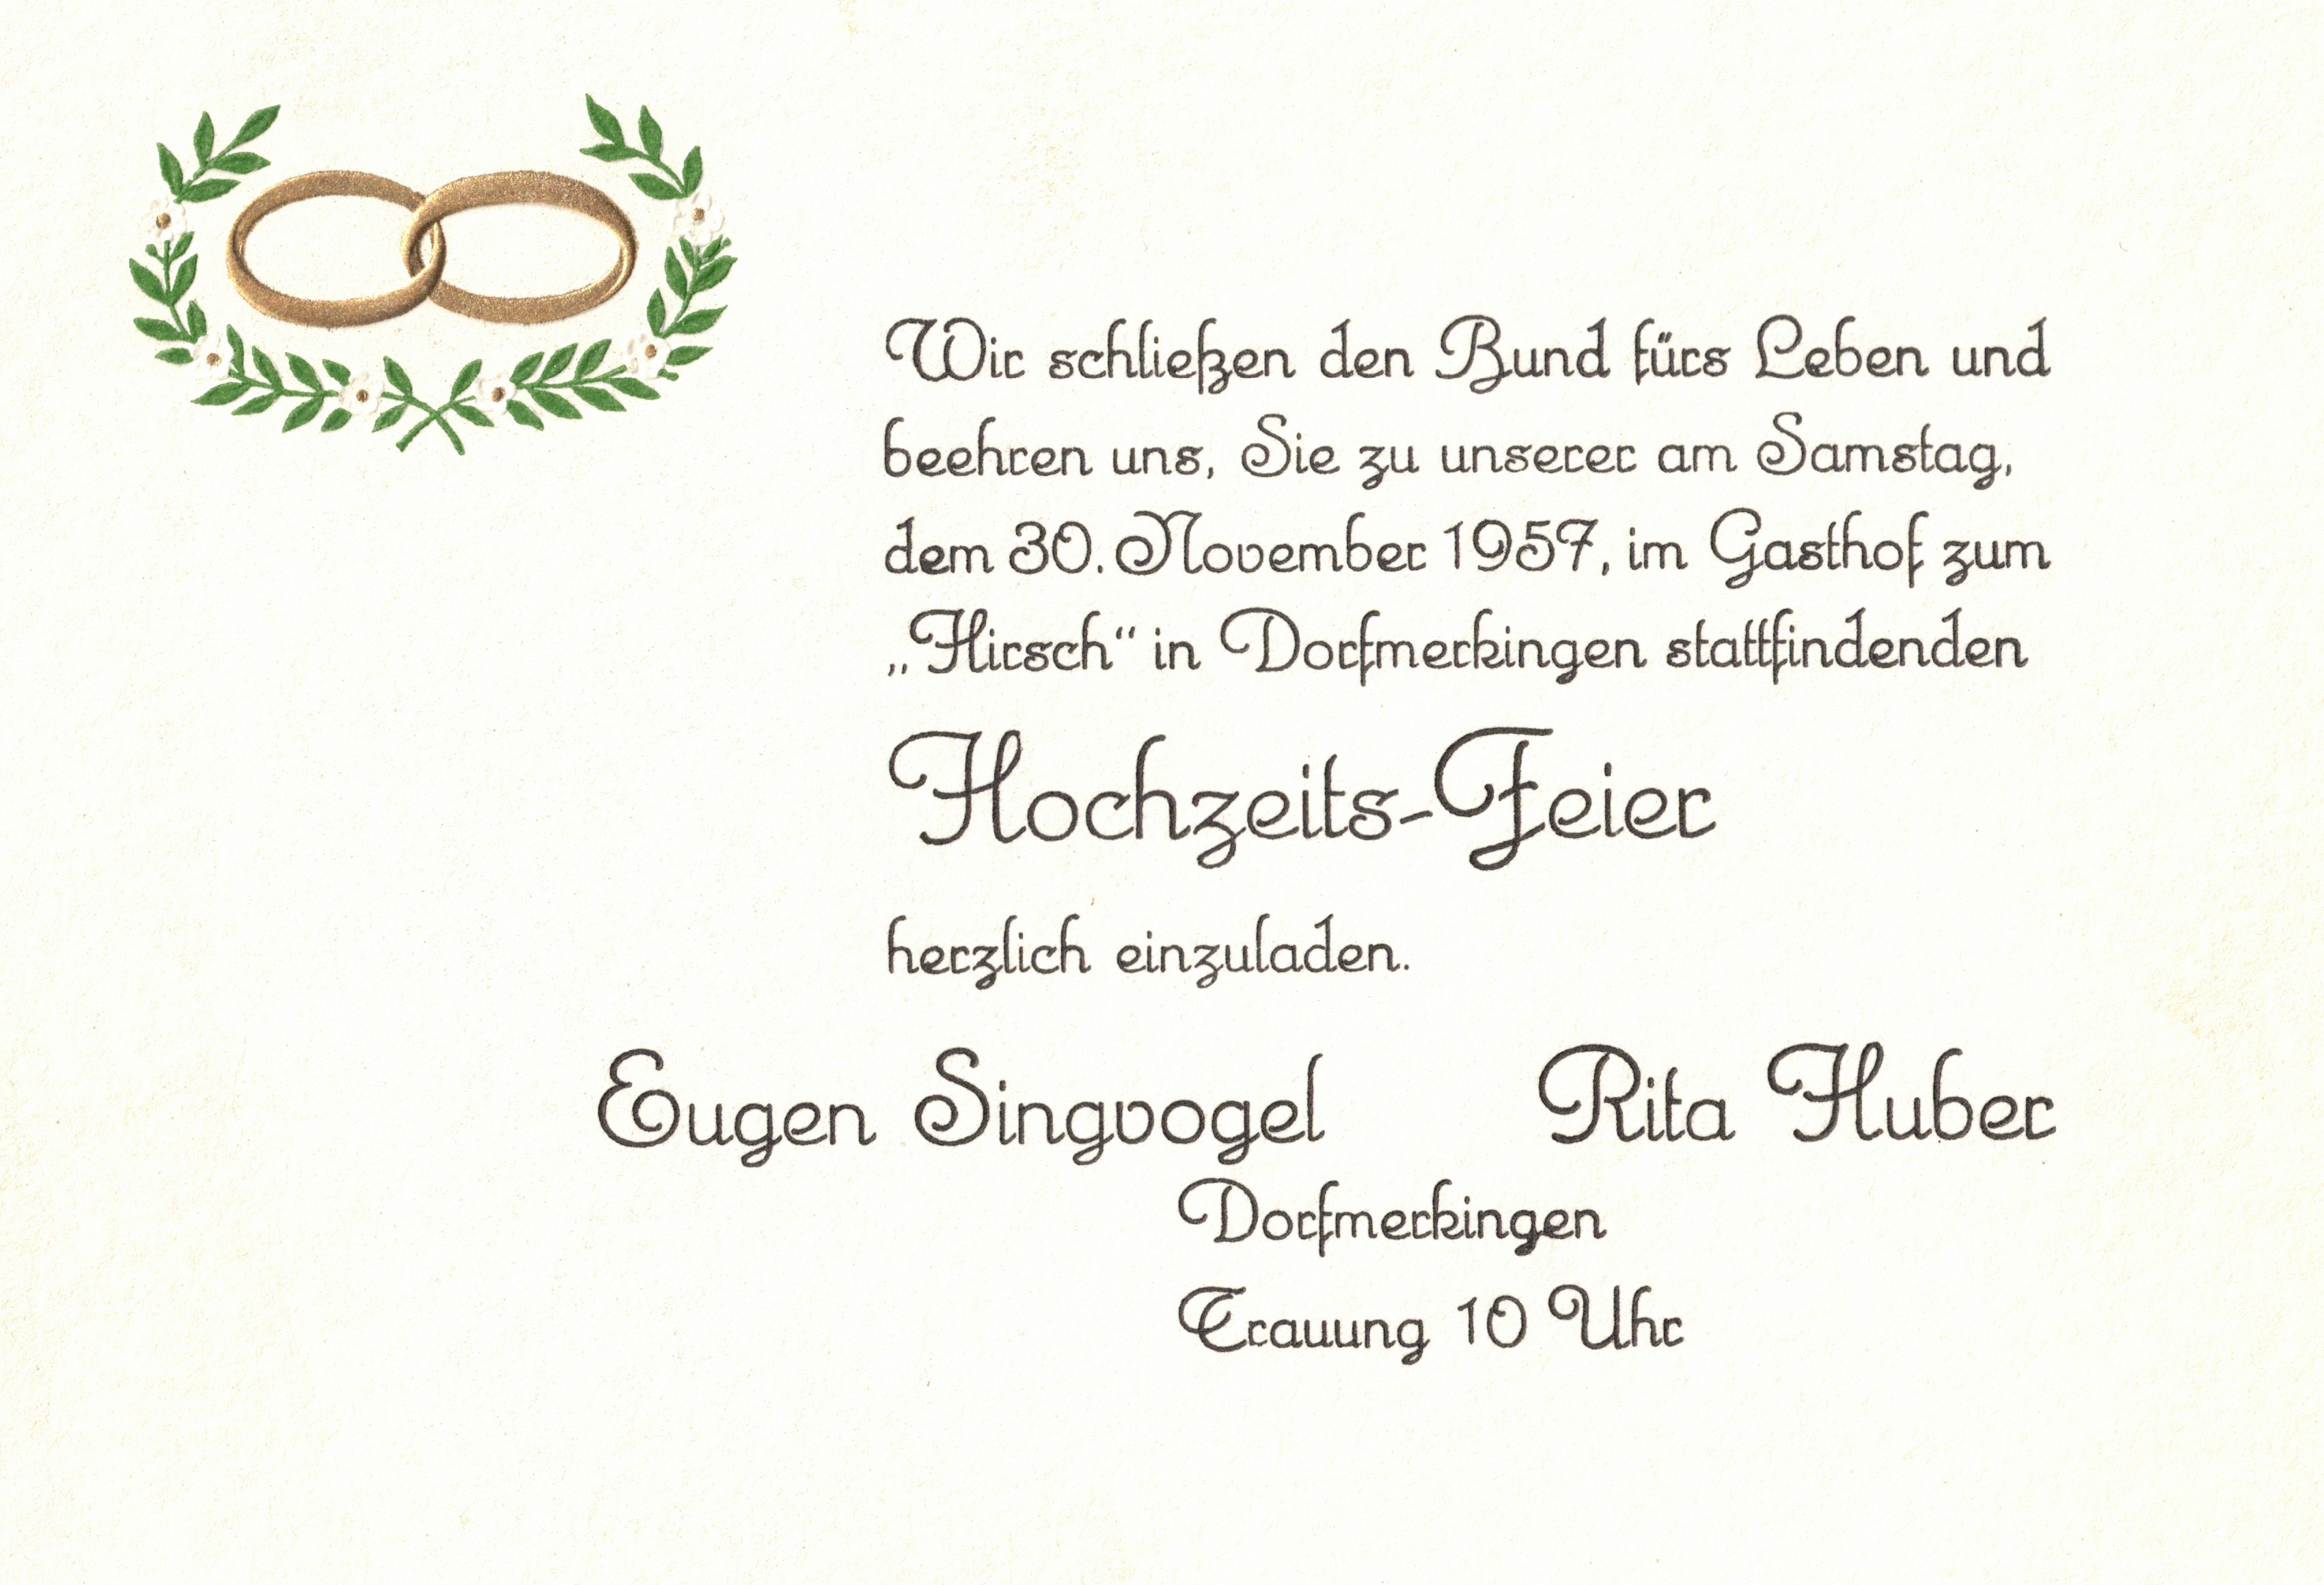 Wir schließen den Bund fürs Leben und
beehren uns, Sie zu unserer am Samstag,
dem 30. November 1957, im Gasthof zum
„Hirsch“ in Dorfmerkingen stattfindenden
Hochzeits-Feier
herzlich einzuladen.
Eugen Singvogel Rita Huber
Dorfmerkingen
Trauung 10 Uhr